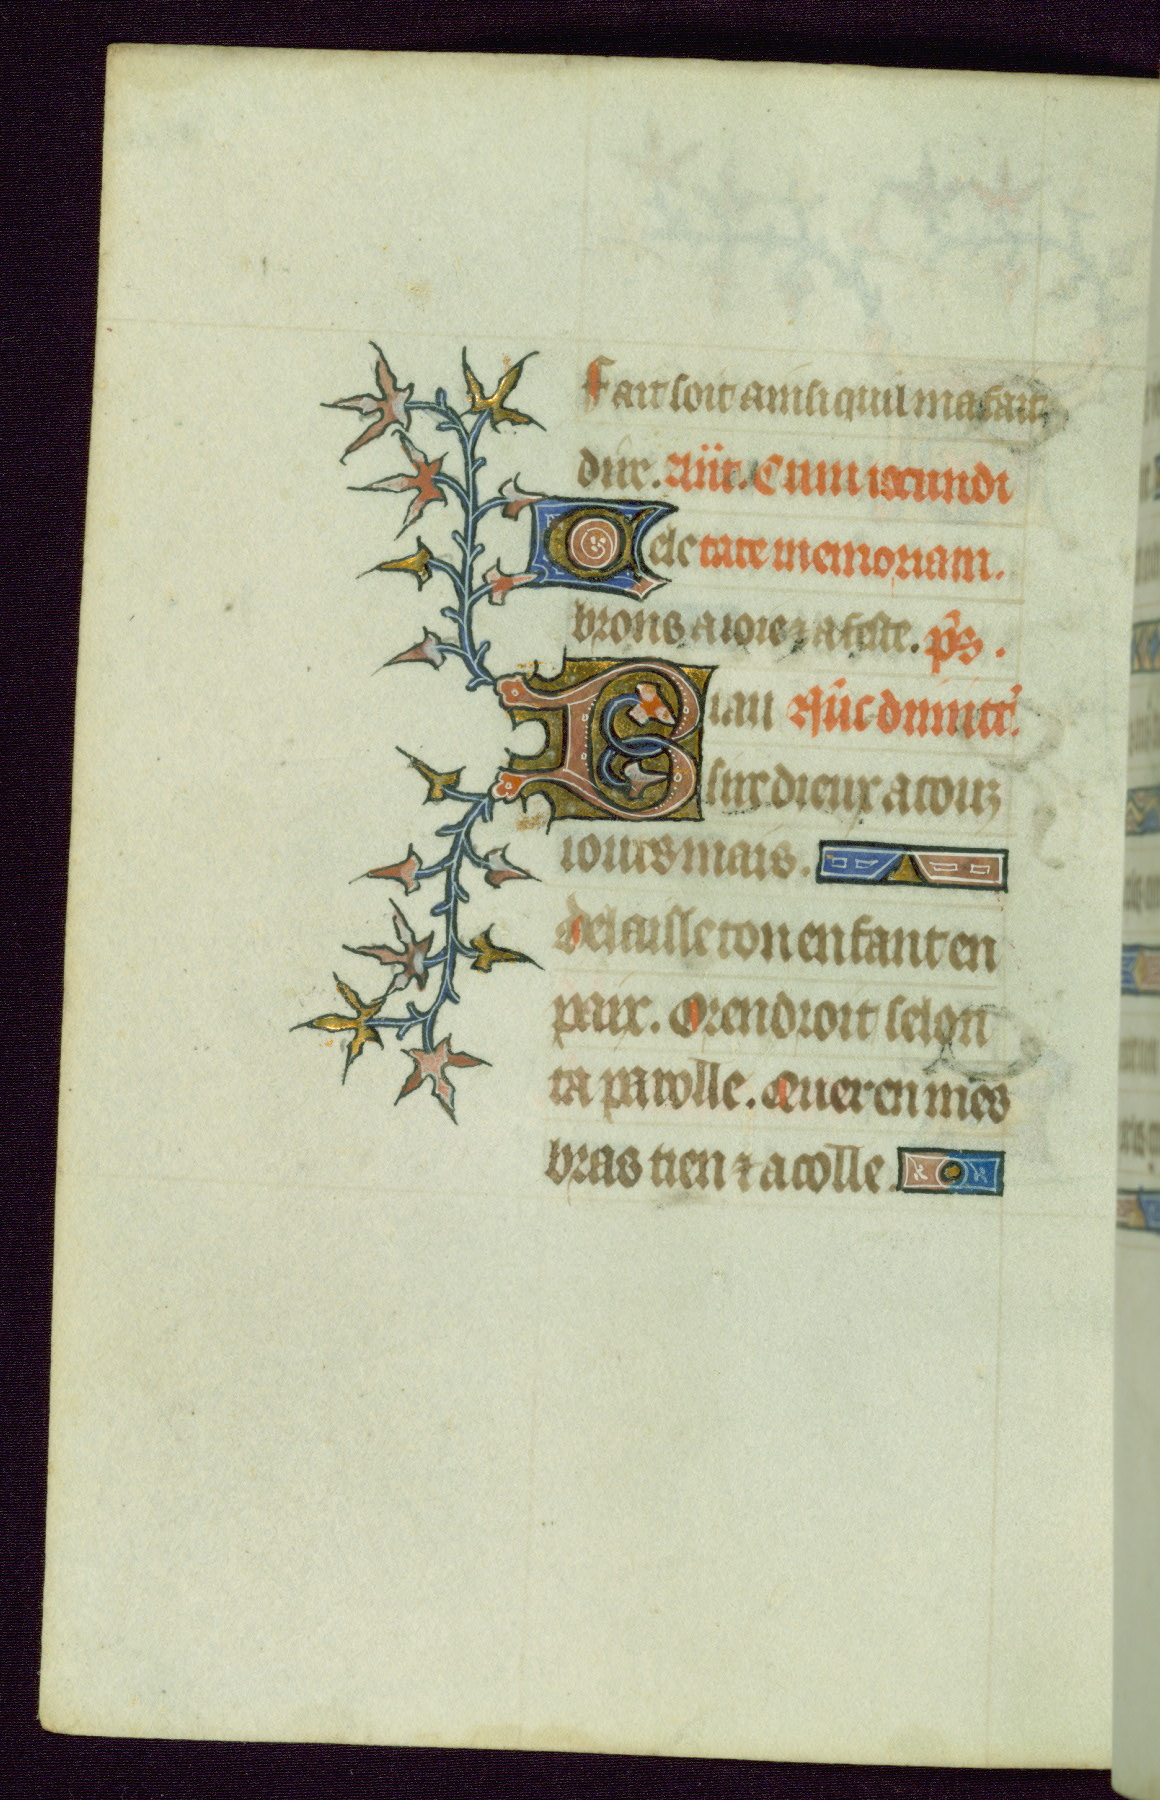 Fait soit ainsi quil ma fait
dire. Añt. Cum iocundi
Cele tate memoriam.
brons a ioie ⁊ a feste. p̃s.
Biau Nũc dimitt̃.
sire dieux a touz
iours mais.
delaisse ton enfant en
paix. Orendroit selon
ta parolle. Quer en mes
bras tien ⁊ acolle.